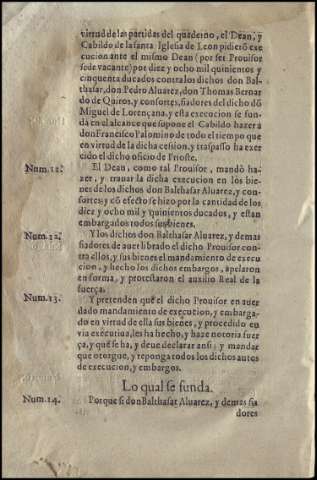 virtud de las partidas del quaderno, el Dean, y
Cabildo de la santa Iglesia de Leon pidierō exe
cucion ante el mismo Dean (por ser Prouisor
sede vacante) por diez y ocho mil quinientos y
cinquenta ducados contra los dichos don Bal-
thasar, don Pedro Aluarez, don Thomas Bernar
do de Quiros, y consortes, fiadores del dicho dō
Miguel de Lorençana, y esta execucion se fun
da en el alcance que supone el Cabildo hazer a
don Francisco Palomino de todo el tiempo que
en virtud de la dicha cesion, y traspasso ha exe
cido el dicho oficio de Prioste.
Num. 11. El Dean, como tal Prouisor, mandò ha-
zer, y trauar la dicha execucion en los bie-
nes de los dichos don Balthasar Aluarez, y con
sortes; y cō efecto se hizo por la cantidad de los
diez y ocho mil y quinientos ducados, y estan
embargados todos sus bienes.
Num. 12. Y los dichos don Balthasar Aluarez, y demas
fiadores de auer librado el dicho Prouisor con-
tra ellos, y sus bienes el mandamiento de execu
cion, y hecho los dichos embargos, apelaron
en forma, y protestaron el auxilio Real de la
fuerça.
Num. 13. Y pretenden que el dicho Prouisor en auer
dado mandamiento de execucion, y embarga-
do en virtud de ella sus bienes, y procedido en
via executiua, les ha hecho, y haze notoria fuer
ça, y què se ha, y deue declarar ansi, y mandar
que otorgue, y reponga todos los dichos autos
de execucion, y embargos.
Lo qual se funda.
Num. 14. Porque si don Balthasar Aluarez, y demas fia
dores